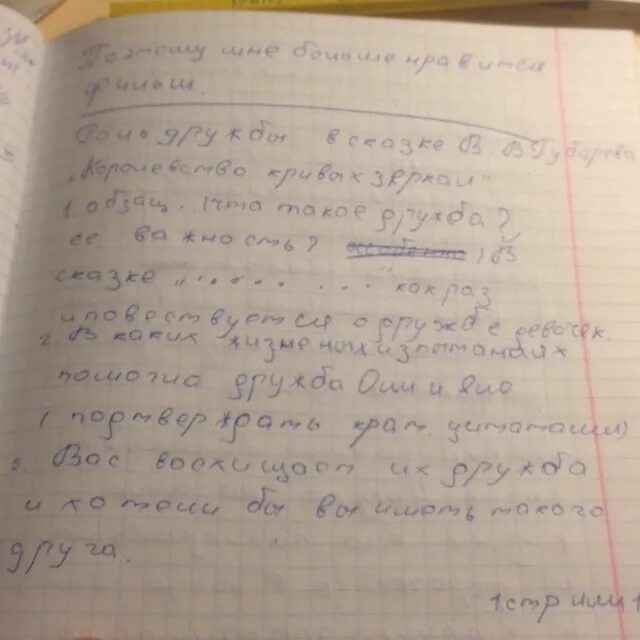 Поэтому мне больше нравится
фильм.
Роль дружбы в сказке В В Губарева
„Королевство кривых зеркал"
1 обзац. Что такое дружба?,
её важность? , В
сказке „........." как раз
и повествуется о дружбе девочек.
2 В каких жизненых испытаниях
помогла дружба Оли и Яло
( подтверждать крат. цитатами)
3. Вас восхищает их дружба
и хотели бы вы иметь такого
друга.
1 стр или 1